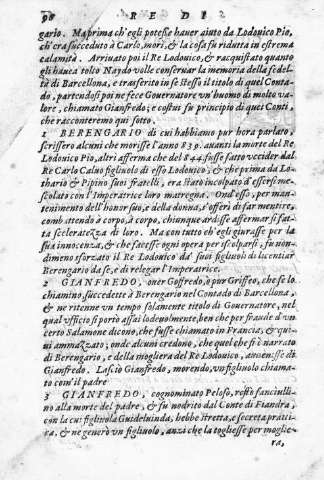 96 R E D I
gario. Ma prima ch'egli potesse hauer aiuto da Lodouico Pio,
ch'era succeduto à Carlo, morì, & la cosa fu ridutta in estrema
calamità. Arriuato poi il Re Lodouico, & racquistato quanto
gli hauea tolto Naydo volle conseruar la memoria della fedel
tà di Barcellona, e trasferito in se stesso il titolo di quel Conta
do, partendosi poi ne fece Gouernatore vn'huomo di molto va
lore, chiamato Gianfredo; e costui fu principio di quei Conti,
che racconteremo quì sotto.
1 BERENGARIO di cui habbiamo pur hora parlato,
scrissero alcuni che morisse l'anno 830. auanti la morte del Re
Lodouico Pio, altri afferma che del 844. fusse fatto vccider dal
Re Carlo Caluo figliuolo di esso Lodouico; & che prima da Lo
thario & Pipino suoi fratelli, era stato incolpato d'essersi me
scolato con l'Imperatrice loro matregna. Ond'esso, per man
tenimento dell'honor suo, e della donna, s'offerì di far mentire,
combattendo à corpo, à corpo, chiunque ardisse affermar sì fat
ta sceleratezza di loro. Ma con tutto ch'egli giurasse per la
sua innocenza, & che facesse ogni opera per iscolparsi, fu non
dimeno sforzato il Re Lodouico da' suoi figliuoli di licentiar
Berengario da se, e di relegar l'Imperatrice.
2 GIANFREDO, ouer Goffredo, o pur Griffeo, che se lo
chiamino, succedette à Berengario nel Contado di Barcellona,
& ne ritenne vn tempo solamente titolo di Gouernatore, nel
qual vfficio si portò assai lodeuolmente, ben che per fraude d'vn
certo Salamone dicono, che fusse chiamato in Francia, & qui
ui ammazzato; onde alcuni credono, che quel che s'è narrato
di Berengario, e della mogliera del Re Lodouico, auuenisse di
Gianfredo. Lasciò Gianfredo, morendo, vn figliuolo chiama-
to com'il padre
3 GIANFREDO, cognominato Peloso, restò fanciulli-
no alla morte del padre, & fu nodrito dal Conte di Fiandra,
con la cui figliuola Guideluinda, hebbe stretta, e secreta prati
ca, & ne generò vn figliuolo, anzi che la togliesse per moglie-
ra,